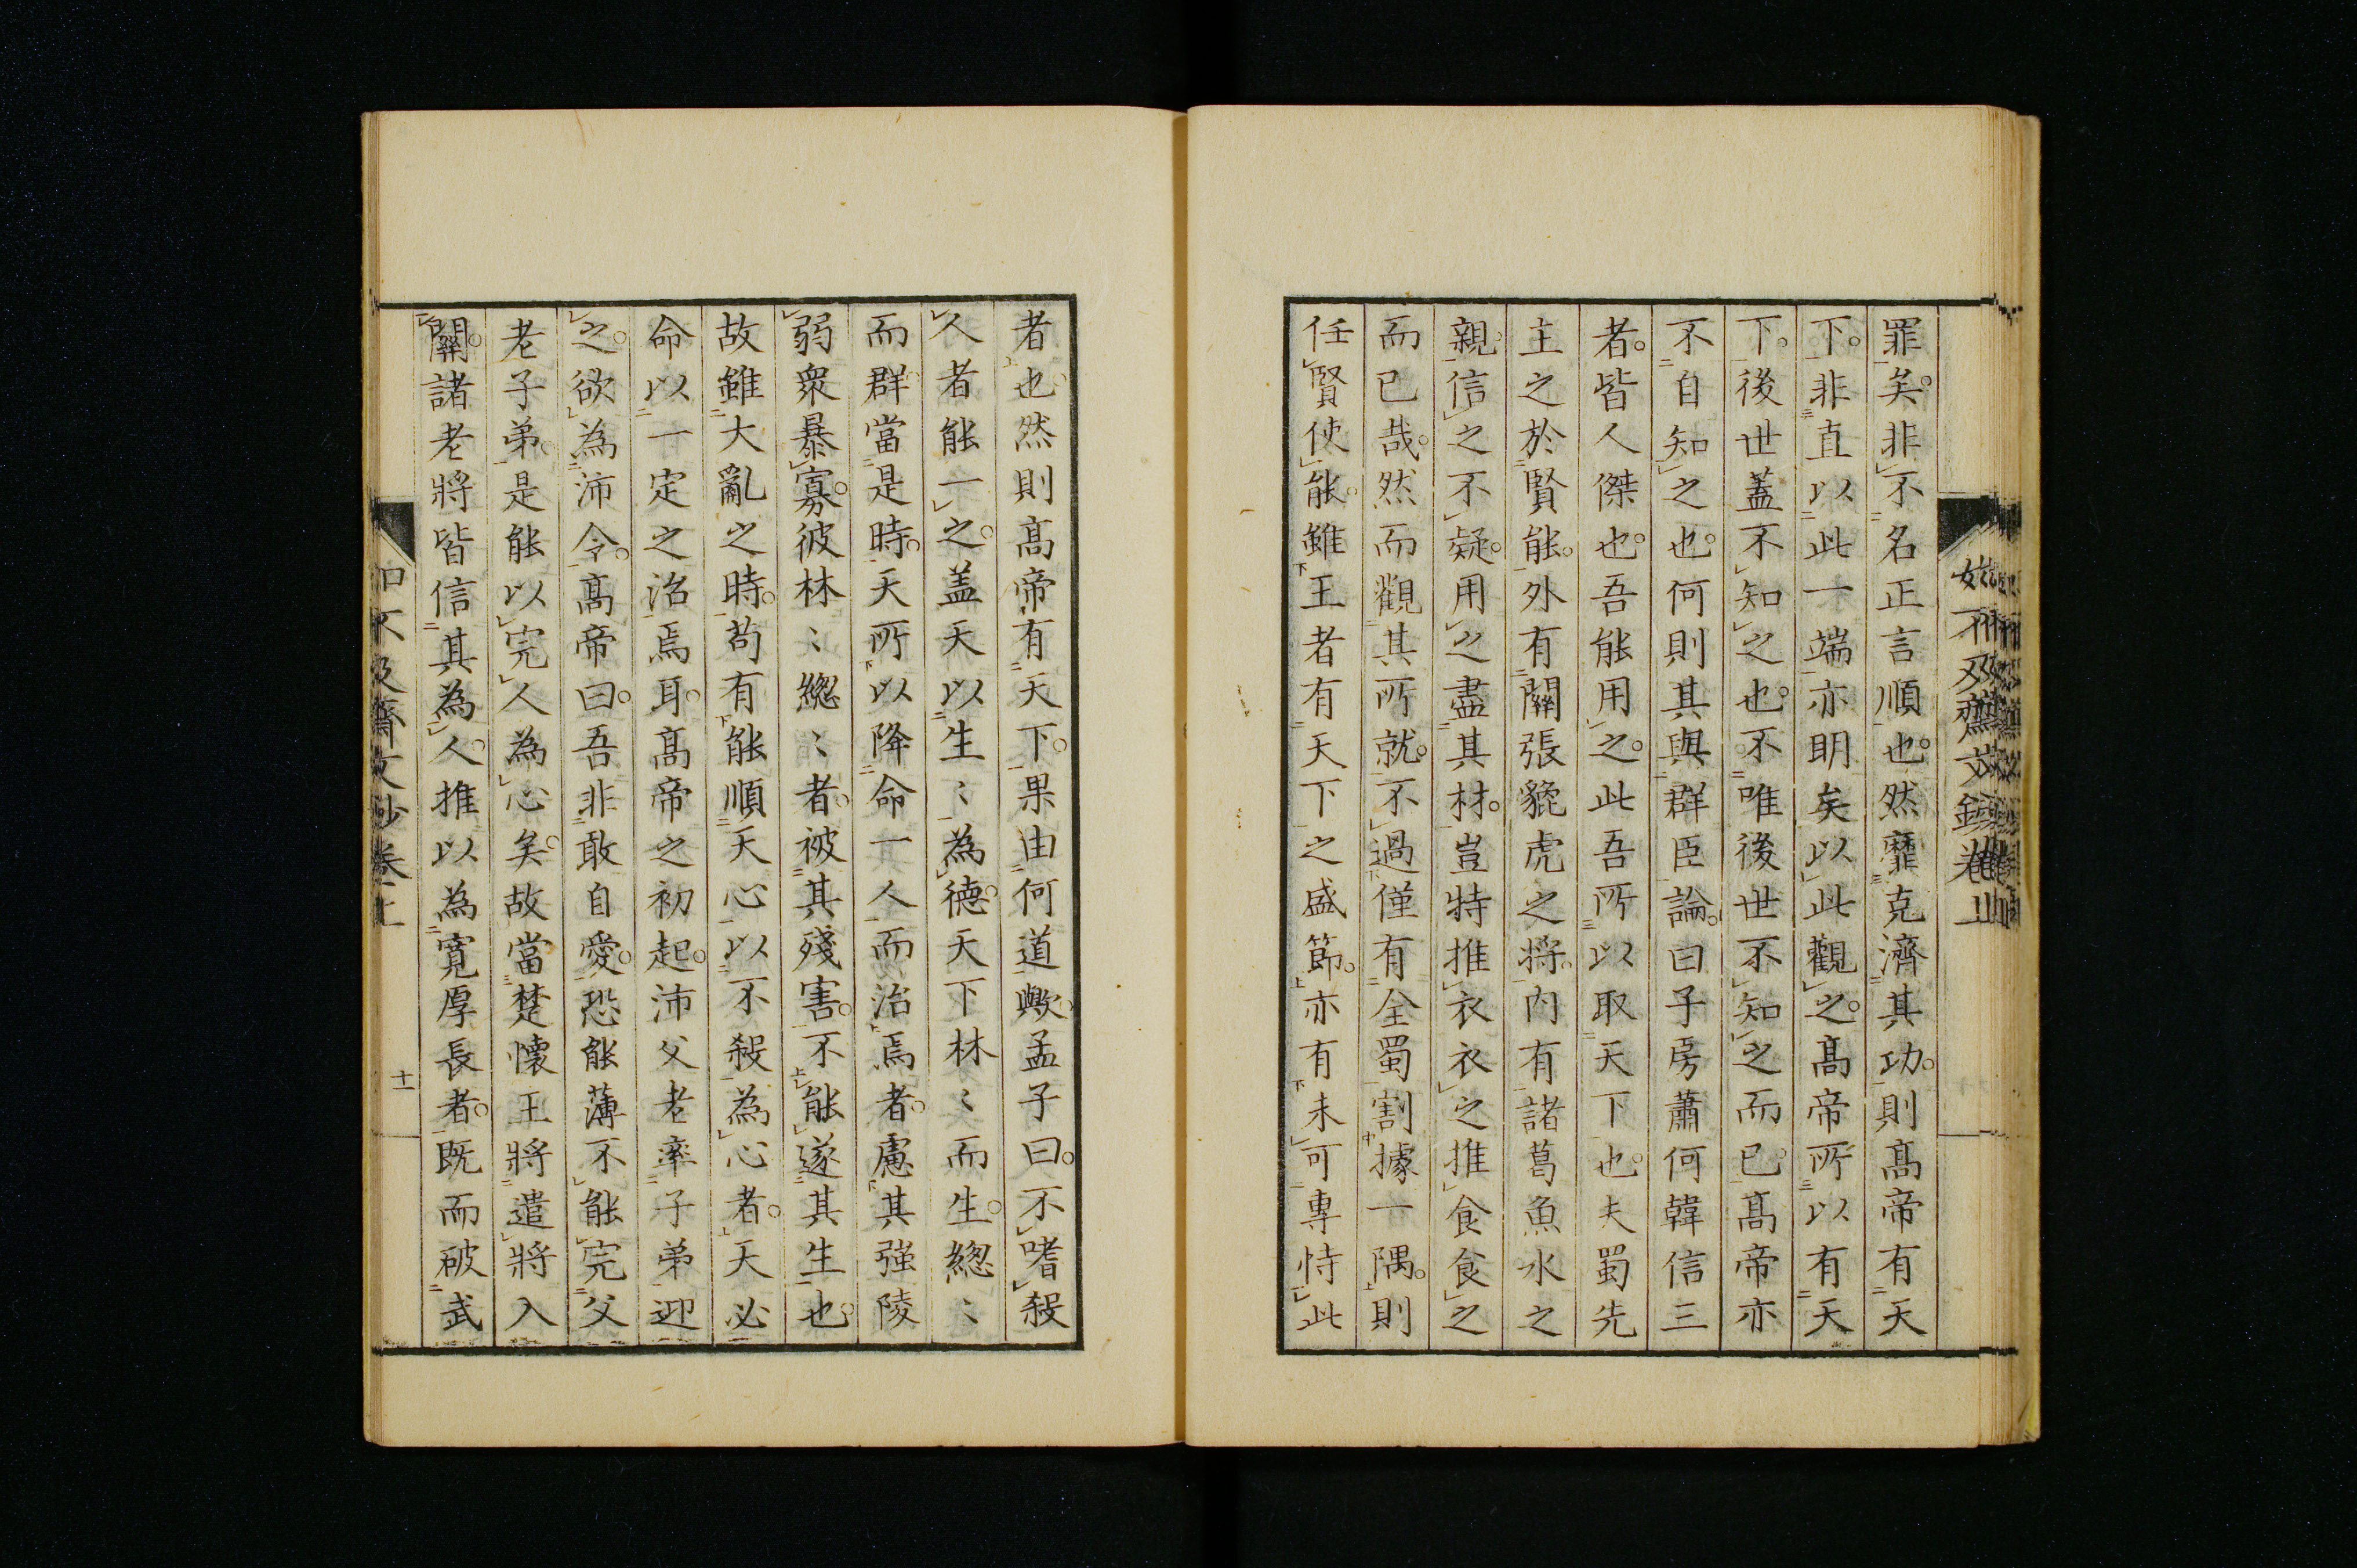 罪矣。非不名正言順也。然靡克濟其功。則髙帝有天
下。非直以此一端亦明矣以此觀之。髙帝所以有天
下。後世蓋不知之也。不唯後世不知之而已。髙帝亦
不自知之也。何則其與群臣論。曰子房蕭何韓信三
者。皆人傑也。吾能用之。此吾所以取天下也。夫蜀先
主之於賢能。外有關張貔虎之將。內有諸葛魚水之
親。信之不疑。用之盡其材。豈特推衣衣之推食食之
而已哉。然而觀其所就。不過僅有全蜀割據一隅。則
任賢使能。雖王者有天下之盛節。亦有未可專恃此
者也。然則髙帝有天下。果由何道歟。孟子曰。不嗜殺
人者能一之。盖天以生〻為德。天下林〻而生。緫〻
而群。當是時。天所以降命一人而治焉者。慮其强陵
弱衆暴寡。彼林〻緫〻者。被其殘害。不能遂其生也。
故雖大亂之時。苟有能順天心以不殺為心者。天必
命以一定之治焉耳。髙帝之初起。沛父老率子弟迎
之。欲為沛令。髙帝曰。吾非敢自愛。恐能薄不能完父
老子弟。是能以完人為心矣。故當楚懷王將遣將入
關。諸老將皆信其為人。推以為寛厚長者。既而破武
如不及齋文鈔卷上
十一